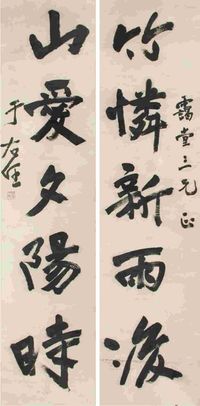 堂三兄正
竹憐新雨後
山愛夕陽時
于右任